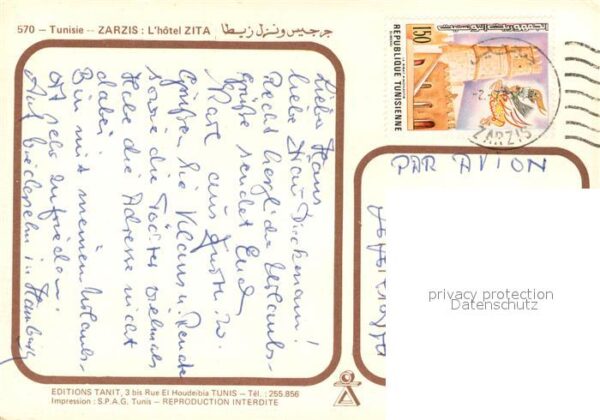 570 - Tunisie -- ZARZIS : L'hôtel ZITA جرجيس ونزل زيطا
150
REPUBLIQUE TUNISIENNE
ZARZIS
PAR AVION
Lieber Hans
liebe Frau Dieckmann!
Recht herzliche Urlaubs-
grüße sendet Euch
aus
Grüßen Sie Klaus u.
sowie die Töchter vielmals
Habe die Adresse nicht
dabei.
Bin mit meinem Urlaubs-
ort sehr zufrieden.
Auf Wiedersehn in Hamburg
privacy protection
Datenschutz
EDITIONS TANIT, 3 bis Rue El Houdeibia TUNIS - Tél. : 255.856
Impression : S.P.A.G. Tunis - REPRODUCTION INTERDITE